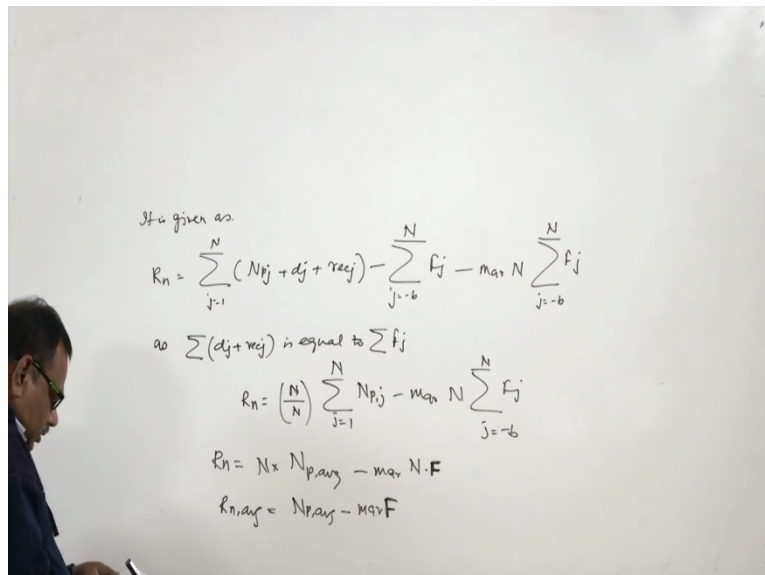 It is given as.
Rn = \sum_{j=1}^{N} (Npj + dj + recj) - \sum_{j=-b}^{N} Fj - mar N \sum_{j=-b}^{N} Fj
as \sum (dj + recj) is equal to \sum fj
Rn = (N/N) \sum_{j=1}^{N} Np,j - mar N \sum_{j=-b}^{N} Fj
Rn = N x Np,avg - mar N.F
Rn,avg = Np,avg - mar F